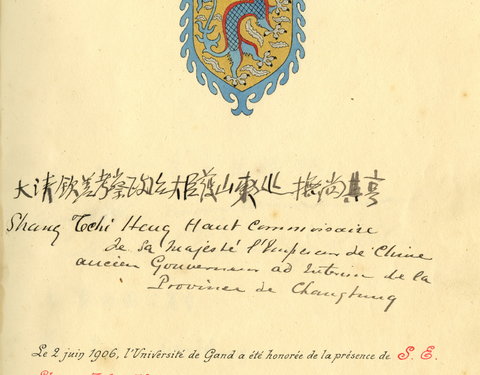 大清欽差考察政治大臣護山東巡撫尚其亨
Shang Tchi Heng Haut Commissaire
de Sa Majesté l'Empereur de Chine
ancien Gouverneur ad Interim de la
Province de Changtung
Le 2 juin 1906, l'Université de Gand a été honorée de la présence de S. E.